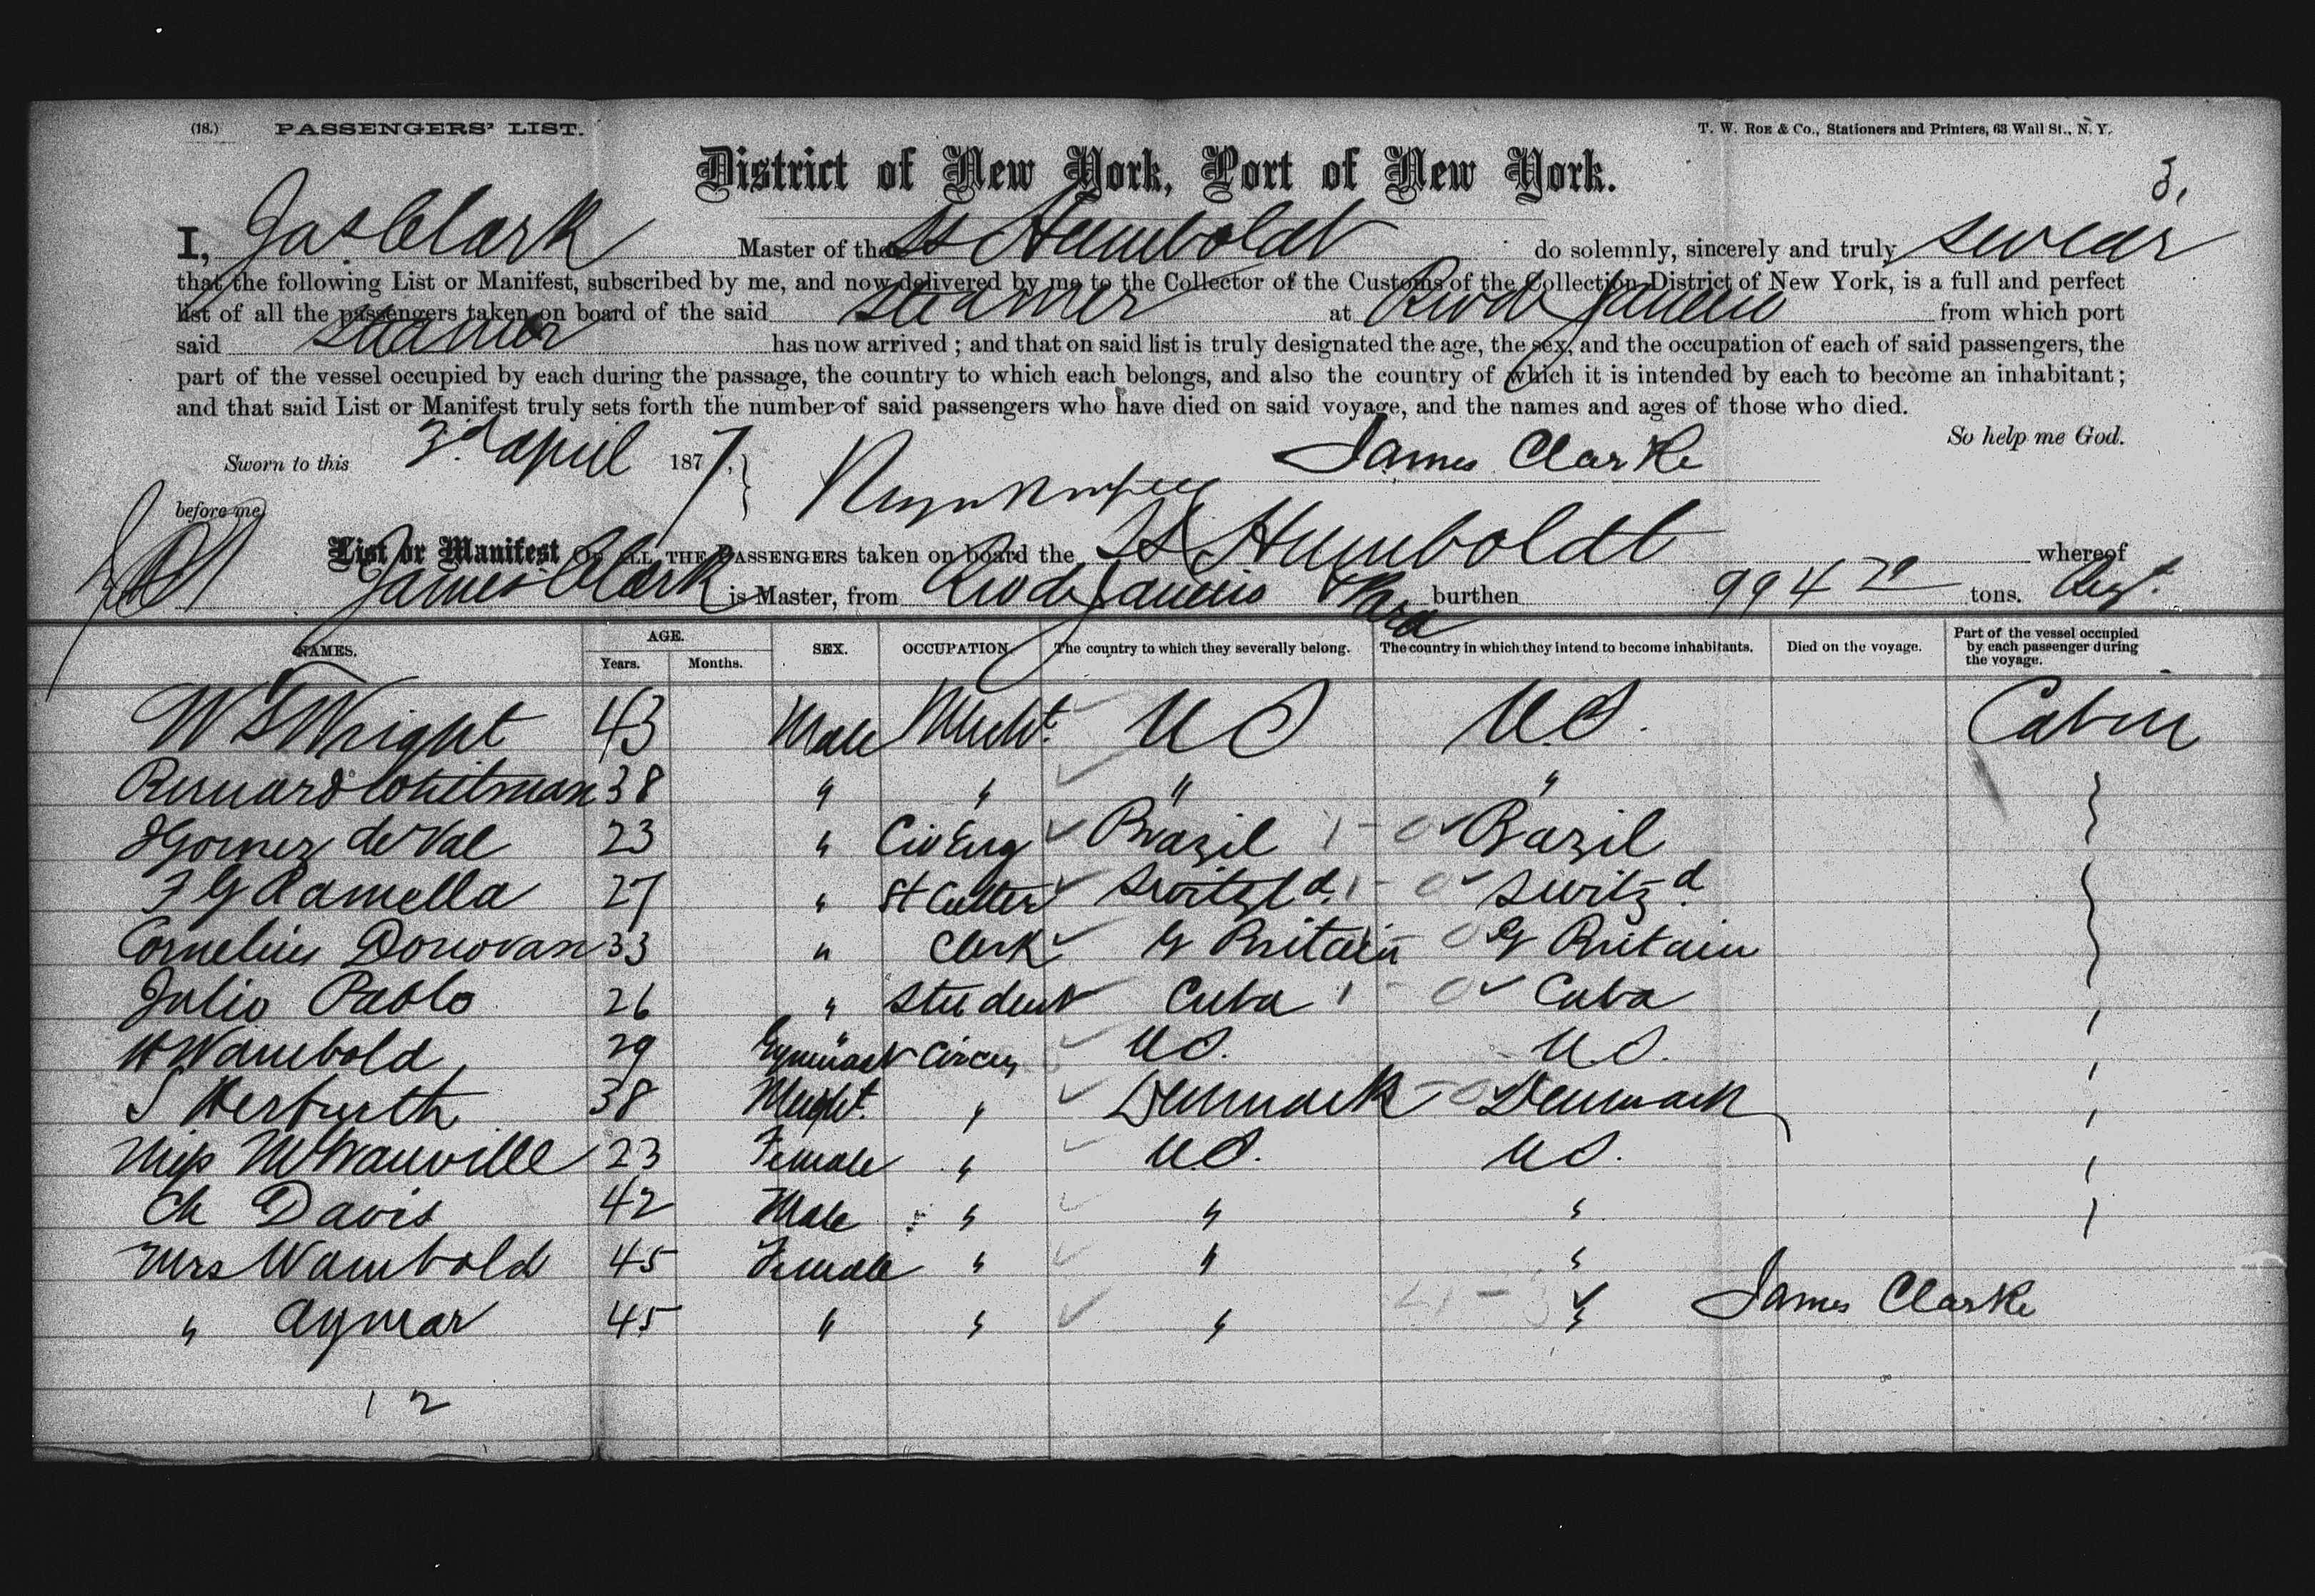 (18.) PASSENGERS' LIST. T. W. Roe & Co., Stationers and Printers, 63 Wall St., N. Y.
District of New York, Port of New York.
3.
I, Jas Clark Master of the SS Humboldt do solemnly, sincerely and truly swear
that the following List or Manifest, subscribed by me, and now delivered by me to the Collector of the Customs of the Collection District of New York, is a full and perfect
list of all the passengers taken on board of the said steamer at Rio de Janeiro from which port
said steamer has now arrived; and that on said list is truly designated the age, the sex, and the occupation of each of said passengers, the
part of the vessel occupied by each during the passage, the country to which each belongs, and also the country of which it is intended by each to become an inhabitant;
and that said List or Manifest truly sets forth the number of said passengers who have died on said voyage, and the names and ages of those who died.
So help me God.
Sworn to this 3d april 1877, James Clarke
before me
List or Manifest OF ALL THE PASSENGERS taken on board the SS Humboldt whereof
James Clark is Master, from Rio de Janeiro & Para burthen 994 tons.
NAMES. AGE. Years. Months. SEX. OCCUPATION. The country to which they severally belong. The country in which they intend to become inhabitants. Died on the voyage. Part of the vessel occupied by each passenger during the voyage.
W S Wright 43 Male Mercht. U S U.S. Cabin
Bernard Whitman 38 " " " "
Gomez de Val 23 " Civ Eng Brazil 1 - 0 Brazil
F G Ramella 27 " St Cutter Switzld. 1 - 0 Switzd.
Cornelius Donovan 33 " Clerk G Britain - 0 G Britain
Julio Pablo 26 " Student Cuba 1 - 0 Cuba
H Wambold 29 " Gymnast Circus U S. U.S.
S 38 " Denmark - 0 Denmark
Miss 23 Female " U.S. U S.
Ch Davis 42 Male " " "
Mrs Wambold 45 Female " " "
" Aymar 45 " " " "
James Clarke
12